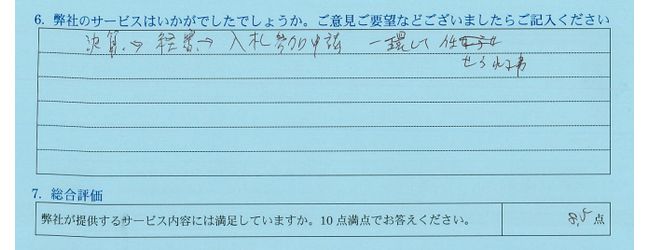 6. 弊社のサービスはいかがでしたでしょうか。ご意見ご要望などございましたらご記入ください
決算→経審→入札参加申請 一環して任
せられる事
7. 総合評価
弊社が提供するサービス内容には満足していますか。10点満点でお答えください。
8.5点